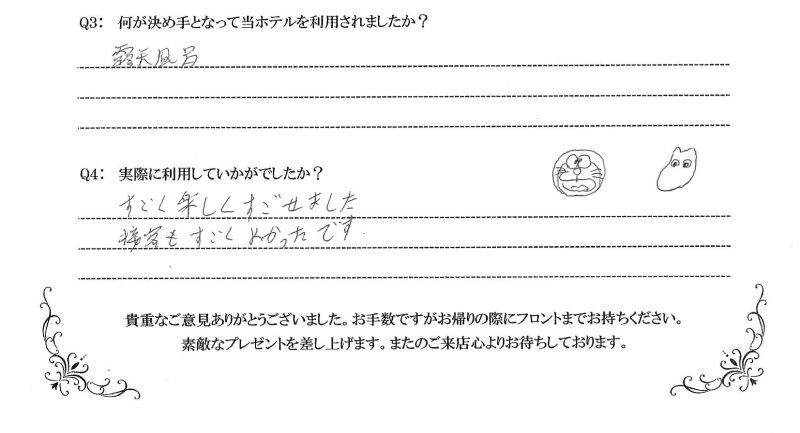 Q3： 何が決め手となって当ホテルを利用されましたか？
露天風呂
Q4： 実際に利用していかがでしたか？
すごく楽しくすごせました
接客もすごくよかったです.
貴重なご意見ありがとうございました。お手数ですがお帰りの際にフロントまでお持ちください。
素敵なプレゼントを差し上げます。またのご来店心よりお待ちしております。